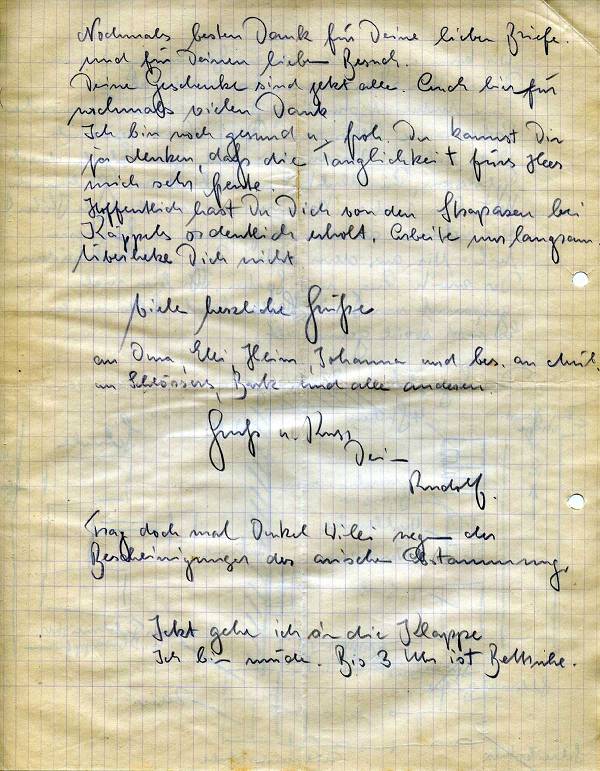 Nochmals besten Dank für Deine lieben Briefe.
und für Deinen lieben Besuch.
Deine Geschenke sind jetzt alle. Auch hierfür
nochmals vielen Dank
Ich bin noch gesund u. froh. Du kannst Dir
ja denken, daß die Tauglichkeit fürs Heer
mich sehr freute.
Hoffentlich hast Du Dich von den Strapasen bei
Käppels ordentlich erholt. Arbeite nur langsam.
Überhebe Dich nicht
Viele herzliche Grüße
an Oma, Elli, Heini, Johanna und bes. an
an Schlössers, Bark und alle anderen.
Gruß u. Kuss
Dein
Rudolf.
Frag doch mal Onkel Willi wegen der
Bescheinigungen der arischen Abstammung.
Jetzt gehe ich in die Klappe
Ich bin müde. Bis 3 Uhr ist Bettruhe.